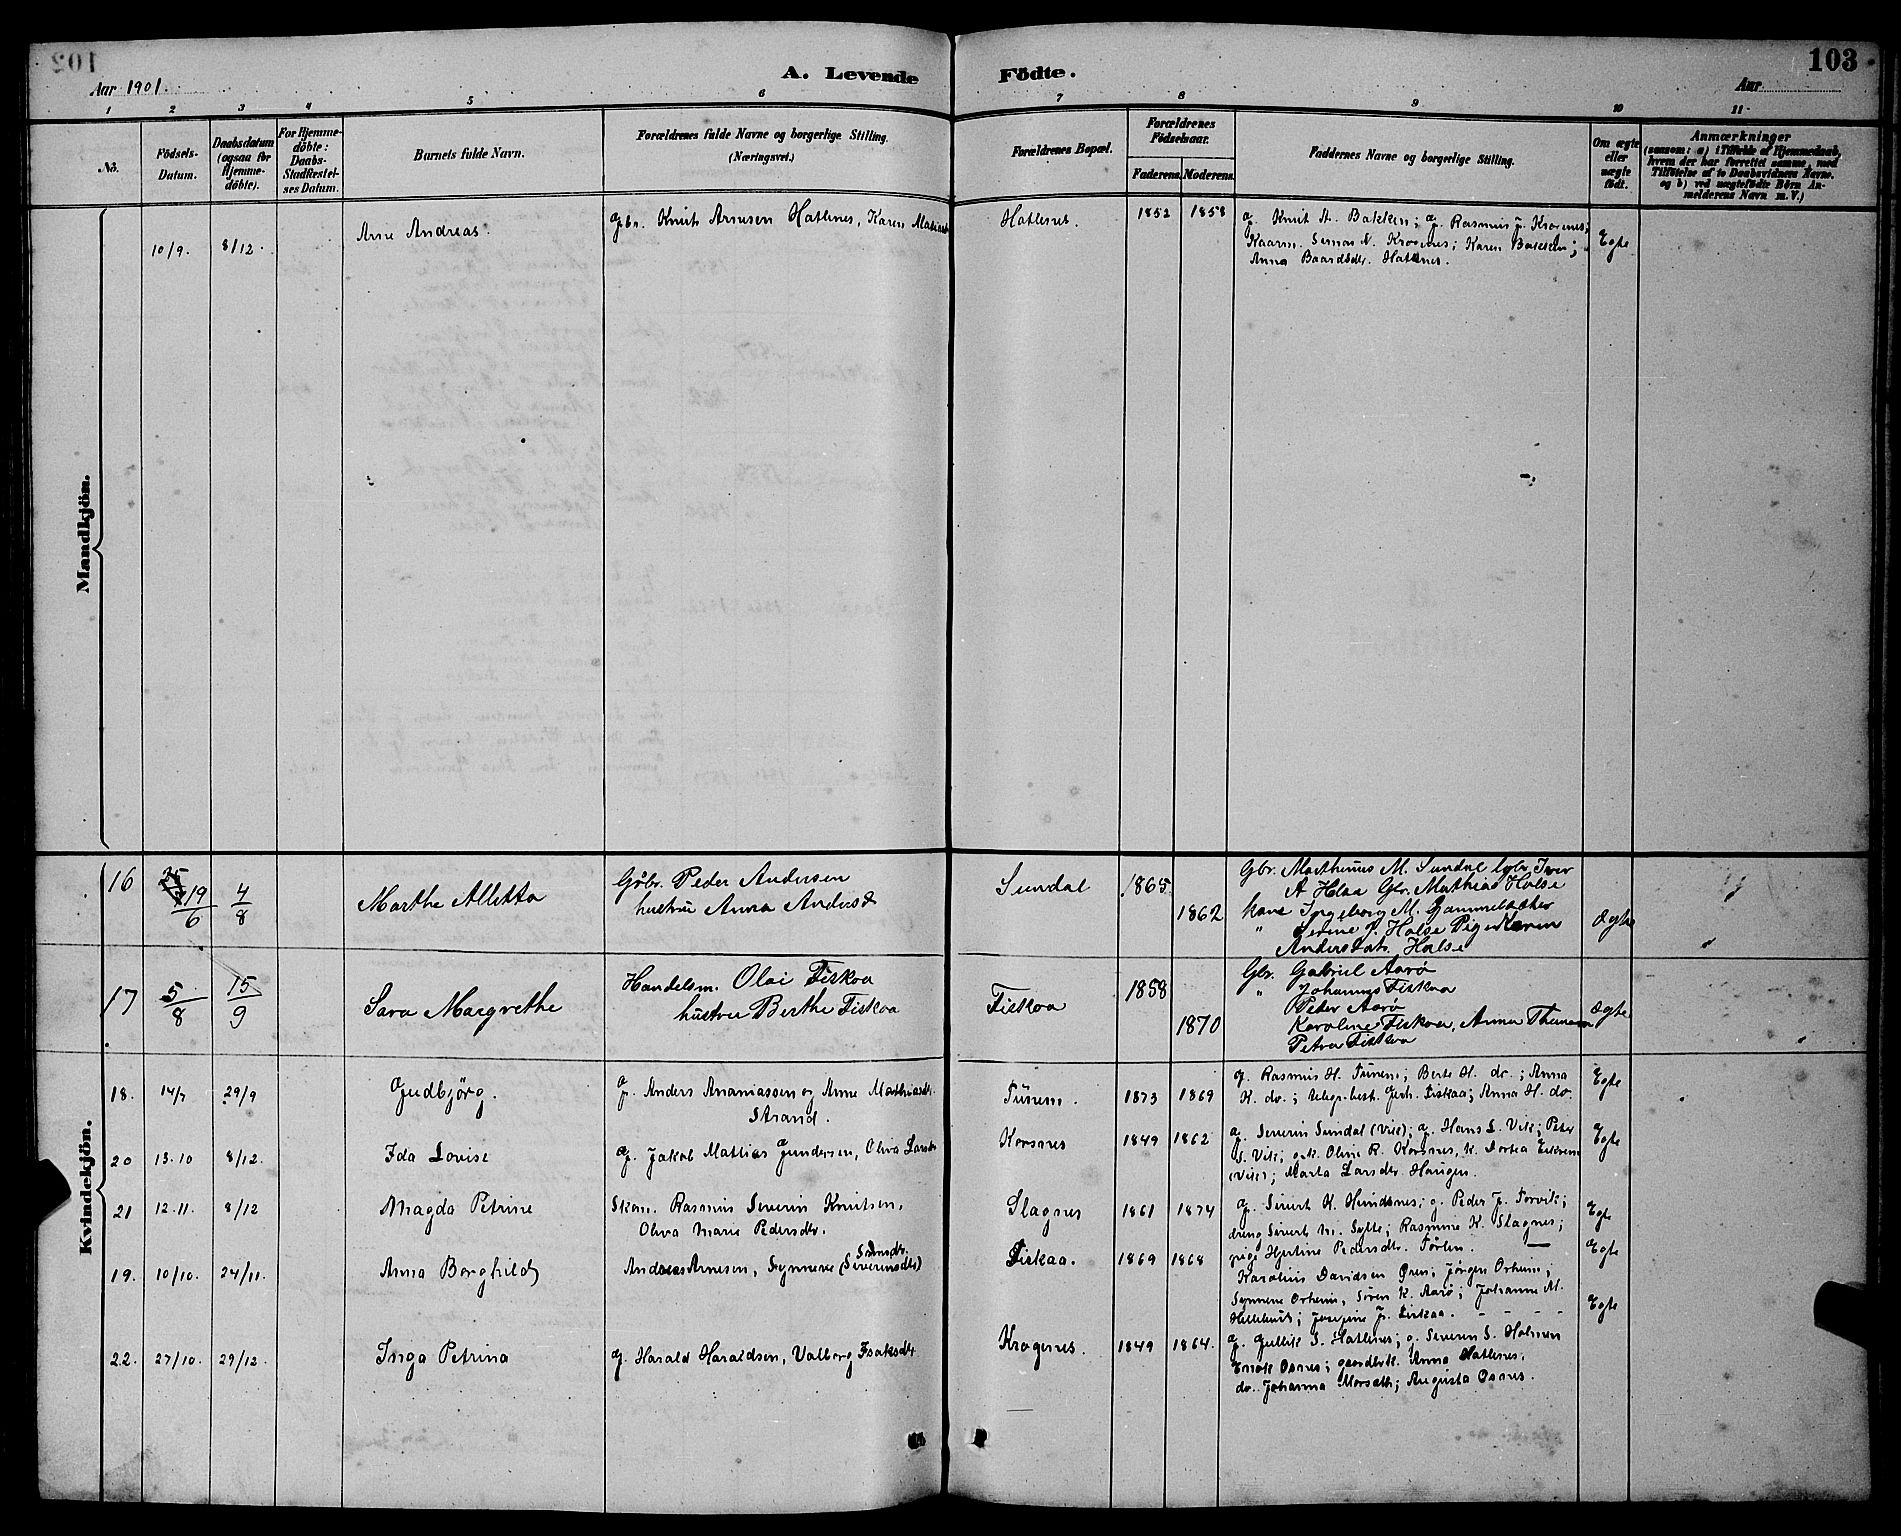 103
Aar 1901.
A. Levende Födte.
Aar
1 2 3 4 5 6 7 8 9 10 11
No.
Födsels-Datum.
Daabsdatum (ogsaa for Hjemme-döbte).
For Hjemme-döbte: Daabs-Stadfæstel-ses Datum.
Barnets fulde Navn.
Forældrenes fulde Navne og borgerlige Stilling.
(Næringsvei.)
Forældrenes Bopæl.
Forældrenes Födselsaar.
Faderens. Moderens.
Faddernes Navne og borgerlige Stilling.
Om ægte eller uægte födt.
Anmærkninger
(saasom: a) i Tilfælde af Hjemmedaab, hvem der har forrettet samme, med Tilföielse af to Daabsvidners Navne. og b) ved uægtefödte Börn Anmelderens Navn m. V.)
Mandkjön.
10/9. 8/12. Arne Andreas. Gbr. Knut Arnesen Hatlenes, Karen Matiasdtr Hatlenes. 1852 1858 g. Knut A. Bakken; g. Rasmus J. Krogenes;
Kaarm. Simon N. Krogenes; Karen Bakken; Egte
Anna Baardsdtr. Hatlenes.
Kvindekjön.
16 19/6 4/8 Marthe Alletta Gbr. Peder Andersen
hustru Anna Andersd
Sundal 1865 1862 Gbr. Mathæus M. Sundal Gbr Iver
A Hlaa Gbr. Mathias Halse
kone Ingeborg M. Gammelsæther
" Serine P. Halse Pige Maren
Andersdatr. Halse
Ægte
17 5/8 15/9 Sara Margrethe Handelsm. Olai Fiskaa
hustru Berthe Fiskaa
Fiskaa 1858 1870 Gbr. Gabriel Aarø
" Johannes Fiskaa
Peter Aarø
Karoline Fiskaa, Anna Thunem
Petra Fiskaa
Ægte
18. 14/7 29/9 Gudbjörg. g. Anders Ananiassen og Anne Mathiasdtr.
Strand.
Tunem. 1873 1869 g. Rasmus H. Tunem; Berte H. do.; Anna
K. do.; telegr.best. Gert. Fiskaa; Anna H. do.
Egte
20 13.10 8/12. Ida Lovise g. Jakob Mathias Gundersen, Oliva Larsdtr Korsnes 1849 1862 g. Severin Sundal (Vik); g. Hans S. Vik; Peter
S. Vik; gk. Oline R. Korsnes, k. Dortea Eikrem
(Vik); Marta Larsdtr. Haugen.
Egte
21 12.11. 8/12 Magda Petrine Skom. Rasmus Severin Knutsen,
Oliva Marie Pedersdtr.
Slagnes 1861 1874 g. Sivert K. Hundsnes; g. Peder J. Torvik;
dreng Sivert M. Sylte; Rasmine K. Slagnes;
pige Hjertine Pedersdtr. Torlen.
Egte
19. 10/10. 24/11. Anna Borghild Andreas Arnesen, Synneve (Severinsdtr) Simonsdtr.
Fiskaa. 1869 1868 Karolius Davidsen Ören; Jörgen Orheim;
Synneve Orheim, Sören K. Aarö; Johanne M.
Hellebust; Josefine J. Fiskaa.
Egte
22. 27/10. 29/12. Inga Petrina g. Harald Haraldsen, Valborg Isaksdtr Krogenes. 1849 1864. g. Gullik S. Hatlenes; g. Severin S. Holmen
Enok Osnes; gaardbrk. Anna Hatlenes.
do. Johanna Morsæth; Augusta Osnes.
Egte